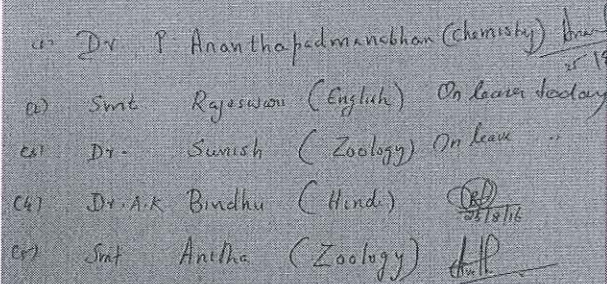 (1) Dr P. Ananthapadmanabhan (Chemistry)
(2) Smt Rajeswari (English) On leave today
(3) Dr. Sunish (Zoology) On leave "
(4) Dr. A.K Bindhu (Hindi) 25/8/16
(5) Smt Anitha (Zoology)